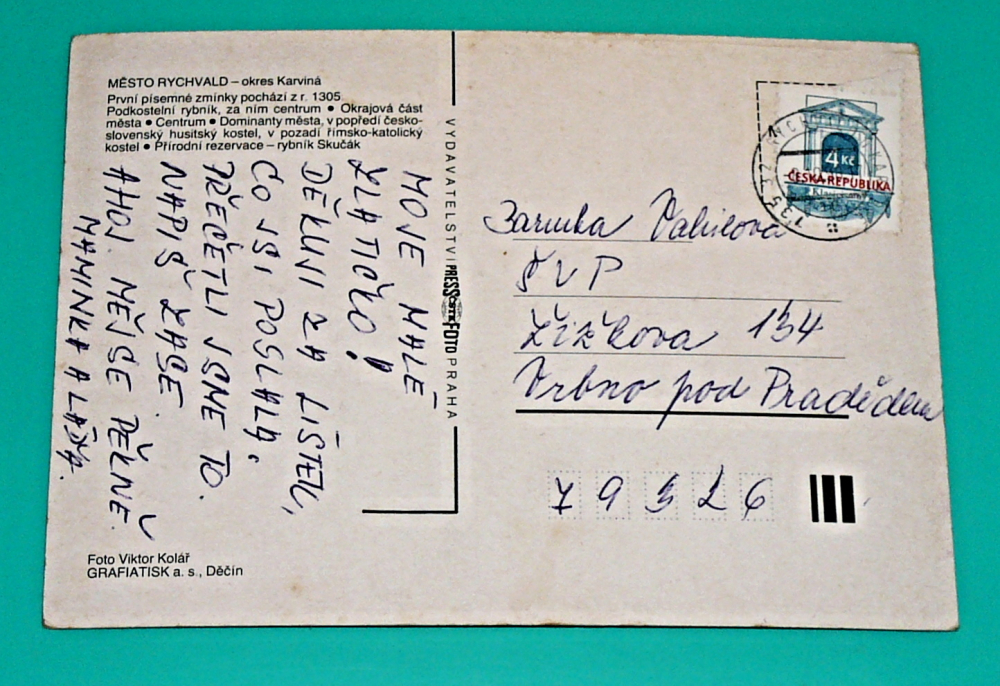 MĚSTO RYCHVALD – okres Karviná
První písemné zmínky pochází z r. 1305
Podkostelní rybník, za ním centrum • Okrajová část
města • Centrum • Dominanty města, v popředí česko-
slovenský husitský kostel, v pozadí římsko-katolický
kostel • Přírodní rezervace – rybník Skučák
MOJE MALÉ
ZLATÍČKO!
DĚKUJI ZA LÍSTEK,
CO JSI POSLALA,
PŘEČETLI JSME TO.
NAPIŠ ZASE.
AHOJ. MĚJ SE PĚKNĚ.
MAMINKA A LÁĎA.
Foto Viktor Kolář
GRAFIATISK a. s., Děčín
VYDAVATELSTVÍ PRESSFOTO PRAHA
ČSTK
4 Kč
ČESKÁ REPUBLIKA
Barunka
ŠVP
Žižkova 134
Vrbno pod Pradědem
79326